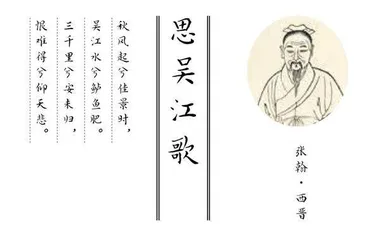 张翰·西晋
思吴江歌
秋风起兮佳景时，
吴江水兮鲈鱼肥。
三千里兮安未归，
恨难得兮仰天悲。